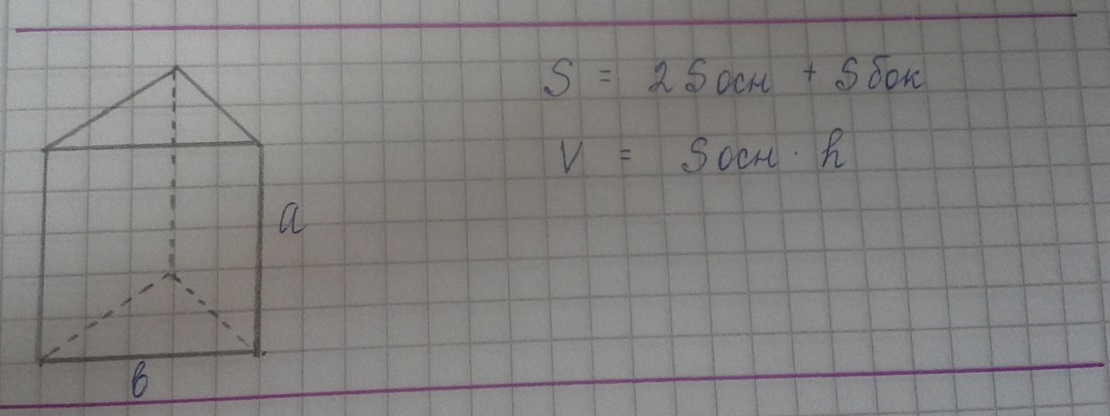 S = 2 Sосн + Sбок
V = Sосн · h
a
в